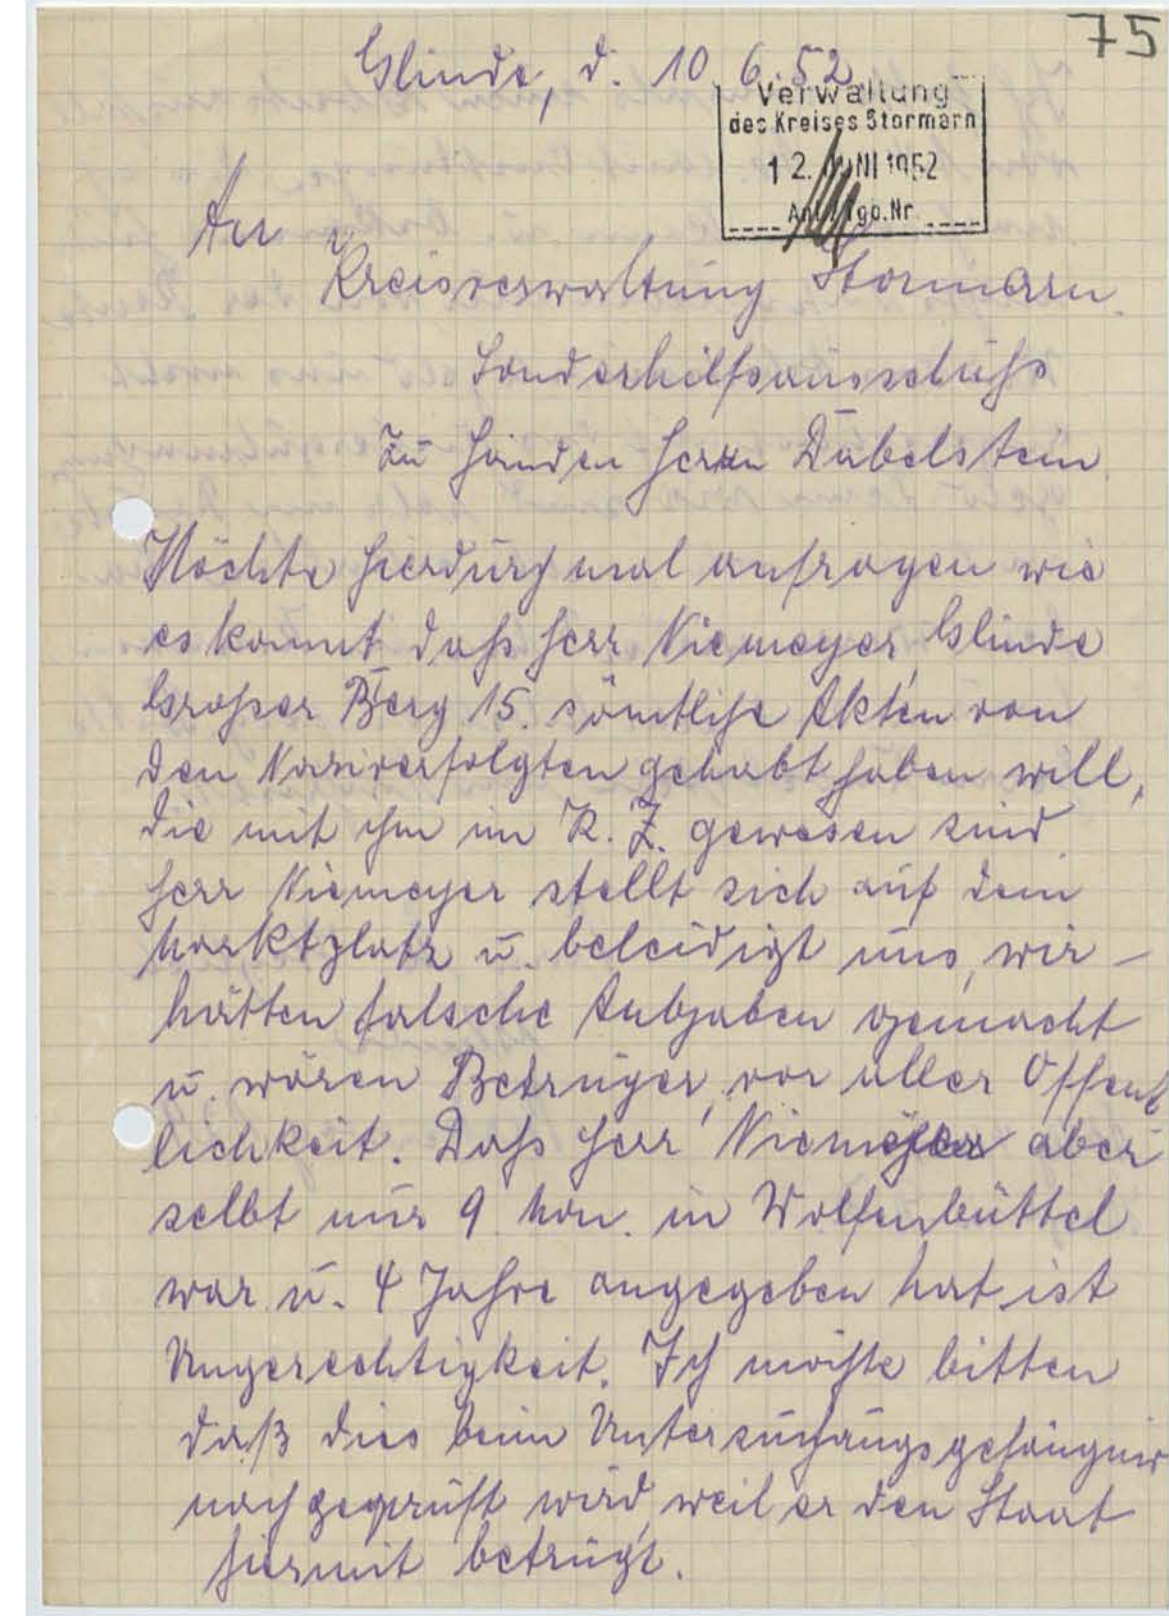 75
Glinde, d. 10.6.52
Verwaltung
des Kreises Stormarn
12. JUNI 1952
An d.
Kreisverwaltung Stormarn.
Sonderhilfsausschuß
Zu Händen Herrn Dabelstein.
Möchte hierdurch mal anfragen wie
es kommt, daß Herr Niemeyer, Glinde
Großer Berg 15. sämtliche Akten von
den Naziverfolgten gehabt haben will,
die mit ihm im K.Z. gewesen sind.
Herr Niemeyer stellt sich auf dem
Marktplatz u. beleidigt uns, wir -
hätten falsche Angaben gemacht
u. wären Betrüger, vor aller Offent
lichkeit. Daß Herr Niemeyer aber
selbt nur 9 Mon. in Wolfenbüttel
war u. 4 Jahre angegeben hat ist
Ungerechtigkeit. Ich möchte bitten
daß dies beim Untersuchungsgefängnis
nachgeprüft wird, weil er den Staat
hiermit betrügt.